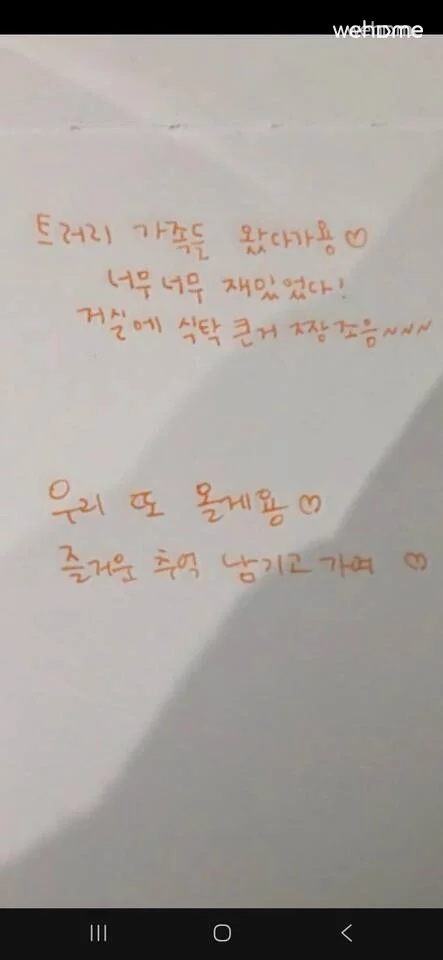 wehome
트러리 가족들 왔다가용♡
너무너무 재밌었다!
거실에 식탁 큰거 짱조음~~~
우리 또 올게용♡
즐거운 추억 남기고 가여 ♡